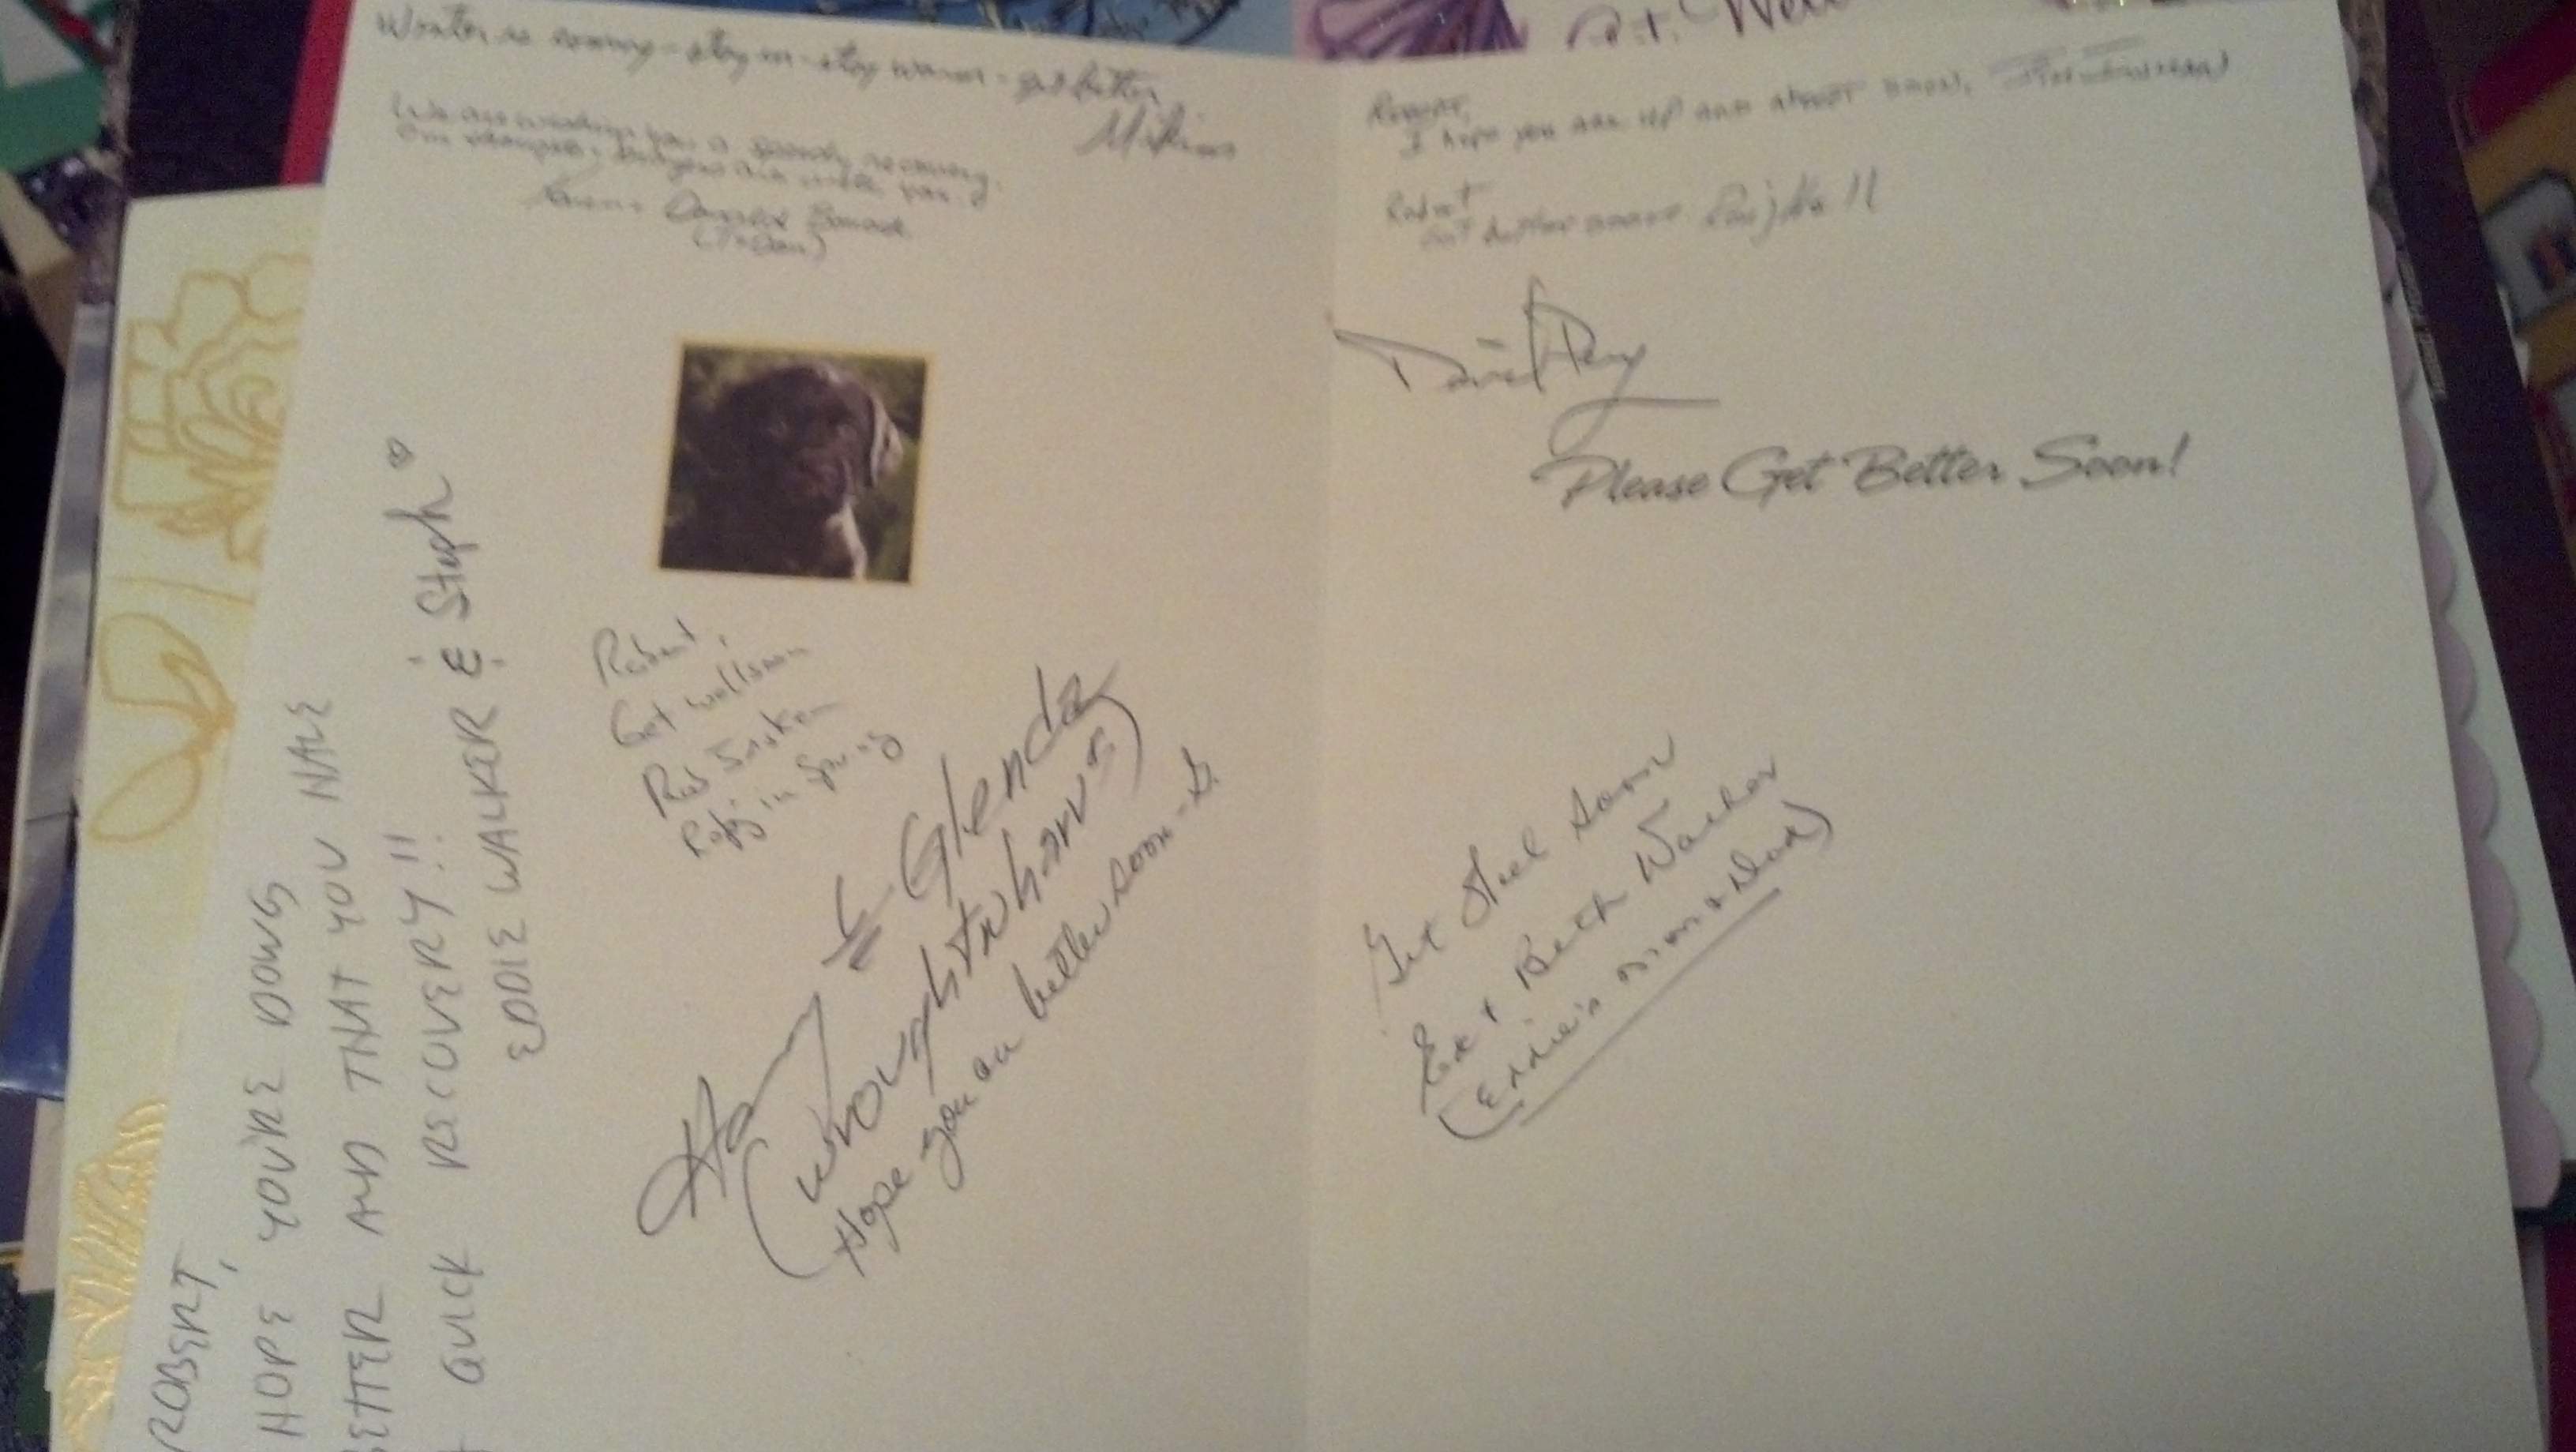 Get Well
Winter is coming - stay in - stay warm - get better
We are wishing you a speedy recovery.
Our thoughts & prayers are with you.
Robert,
Get well soon
Rob
in Spring
Harry & Glenda
(Wroughtwharves)
Hope you are better soon - G.
ROBERT,
HOPE YOU'RE DOING
BETTER AND THAT YOU HAVE
A QUICK RECOVERY!!
EDDIE WALKER & Steph ♡
Robert,
I hope you are up and about soon,
Robert
Get better soon
David
Please Get Better Soon!
Get Feel Soon
Ed + Beth Walker
(Eddie's mom + Dad)